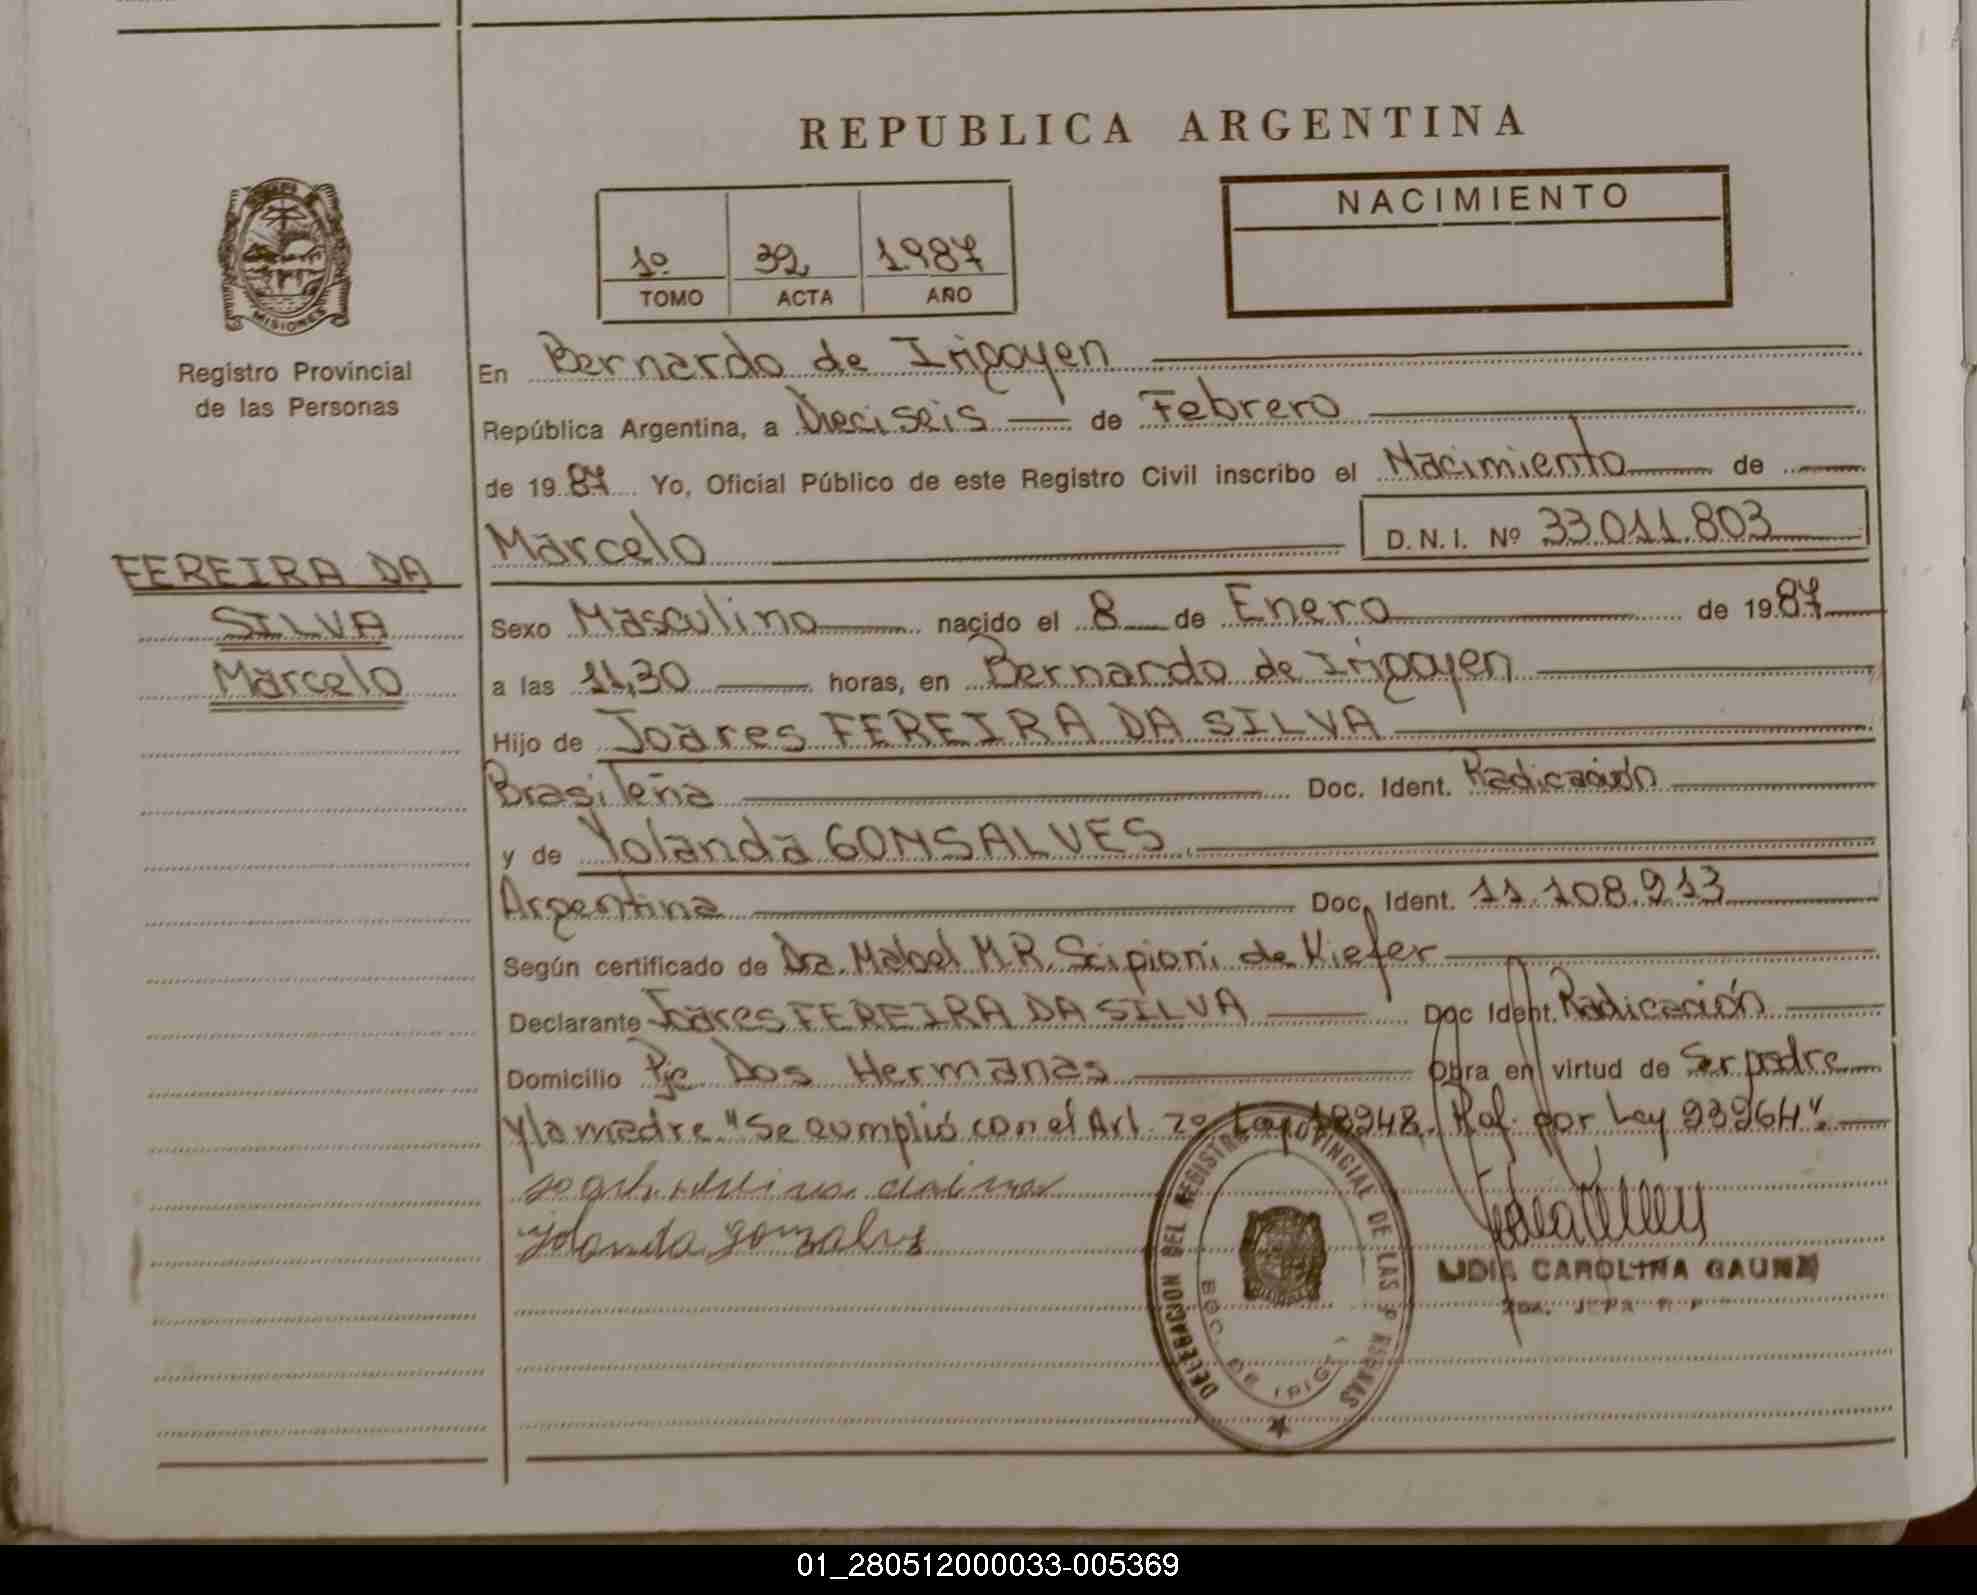 REPUBLICA ARGENTINA
NACIMIENTO
1º 32 1987
TOMO ACTA AÑO
MISIONES
Registro Provincial
de las Personas
FEREIRA DA
SILVA
Marcelo
En Bernardo de Irigoyen
República Argentina, a Dieciseis de Febrero
de 1987 Yo, Oficial Público de este Registro Civil inscribo el Nacimiento de
Marcelo D.N.I. Nº 33.011.803
Sexo Masculino nacido el 8 de Enero de 1987
a las 11,30 horas, en Bernardo de Irigoyen
Hijo de Joares FEREIRA DA SILVA
Brasileña Doc. Ident. Radicación
y de Yolanda GONSALVES
Argentina Doc. Ident. 11.108.913
Según certificado de Dra. Mabel M.R. Scipioni de Kiefer
Declarante Joares FEREIRA DA SILVA Doc Ident. Radicación
Domicilio Pje Dos Hermanas Obra en virtud de Ser padre
y la madre "Se cumplió con el Art. 2º Ley 18248, Ref. por Ley 23264".
Yolanda gonzalves
DELEGACION DEL REGISTRO PROVINCIAL DE LAS PERSONAS
BDO. DE IRIG
LIDIA CAROLINA GAUNA
01_280512000033-005369